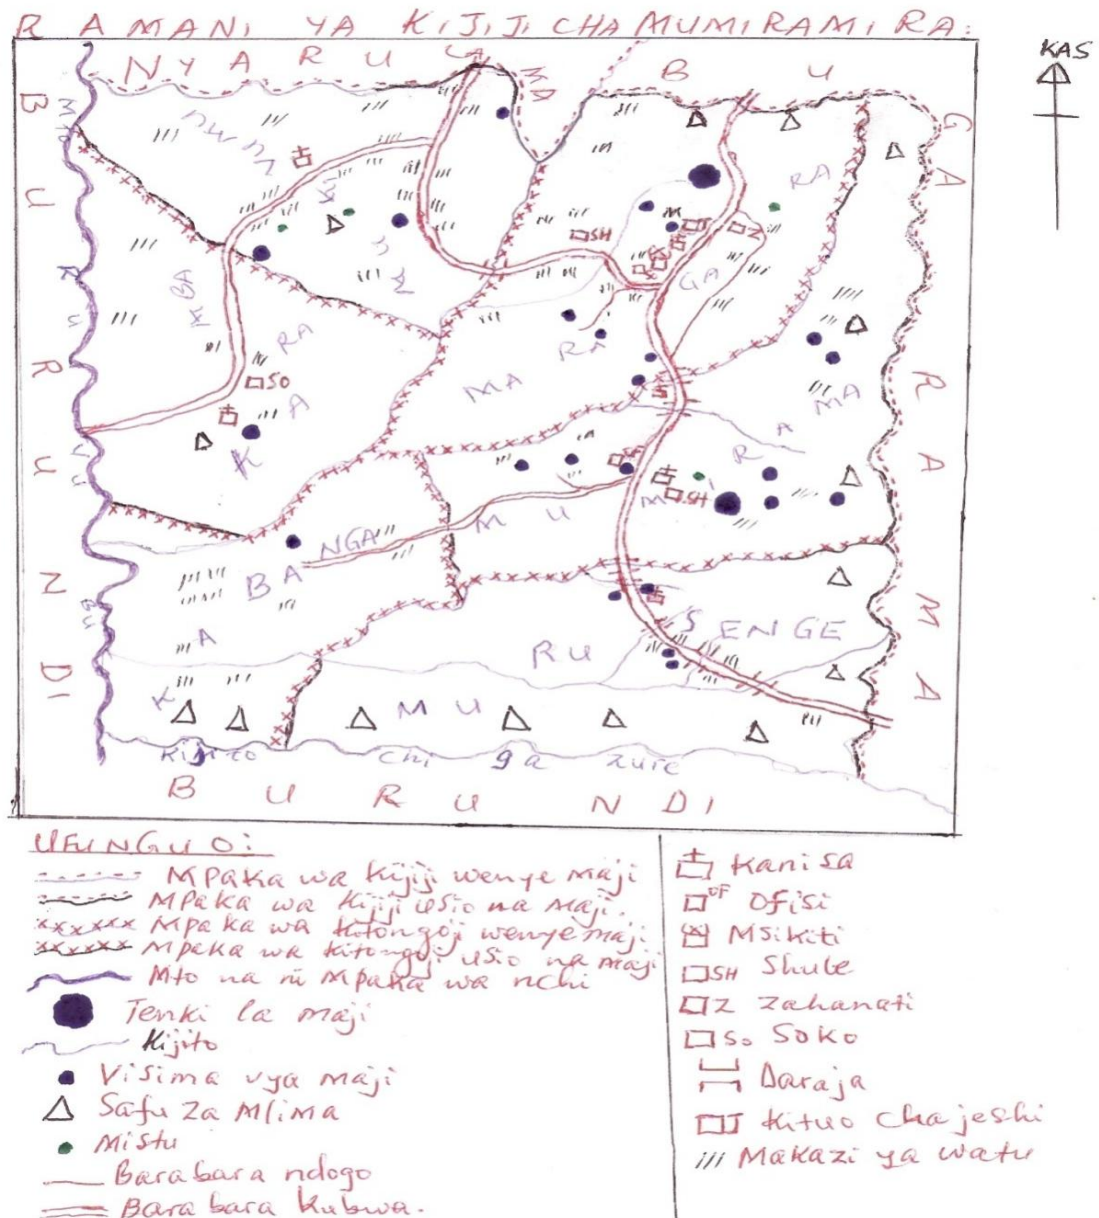 RAMANI YA KIJIJI CHA MUMIRAMIRA:
KAS
NYARU
BU
GARAMA
BURUNDI
RA
GA
RA
MA
RA
A
K
MA
RA
MU
NGA
BA
A
K
SENGE
RU
MU
SH
SO
SH
Z
Kijito chi ga zure
BURUNDI
UFUNGUO:
Mpaka wa Kijiji wenye maji
Mpaka wa Kijiji usio na maji.
Mpaka wa kitongoji wenye maji
Mpaka wa kitongoji usio na maji
Mto na ni Mpaka wa nchi
Tenki la maji
Kijito
Visima vya maji
Safu za Mlima
Mistu
Barabara ndogo
Barabara Kubwa.
Kanisa
OF Ofisi
Msikiti
SH Shule
Z Zahanati
So Soko
Daraja
J Kituo cha jeshi
Makazi ya watu